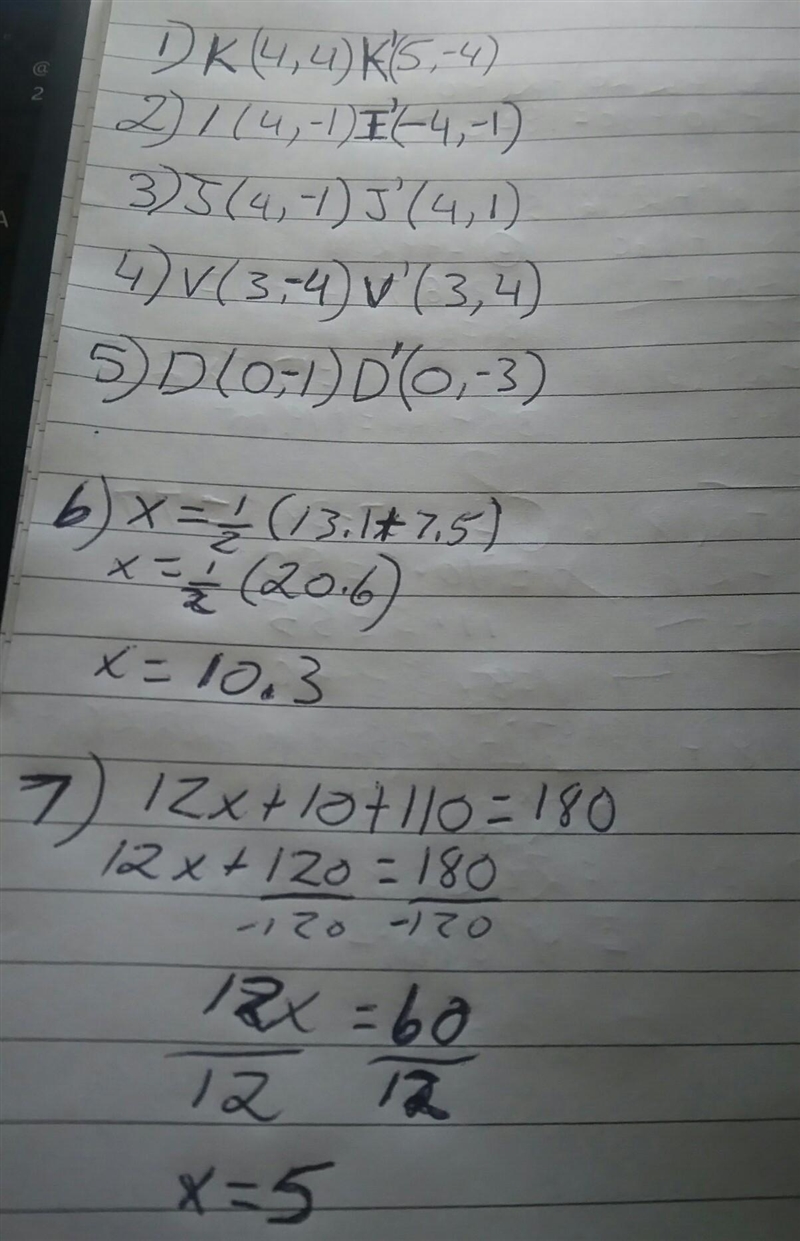 @
2
A
1) K(4,4) K'(5,-4)
2) I(4,-1) I'(-4,-1)
3) J(4,-1) J'(4,1)
4) V(3,-4) V'(3,4)
5) D(0,-1) D'(0,-3)
6) x = 1/2 (13.1+7.5)
x = 1/2 (20.6)
x = 10.3
7) 12x+10+110=180
12x+120=180
-120 -120
12x = 60
12 12
x=5